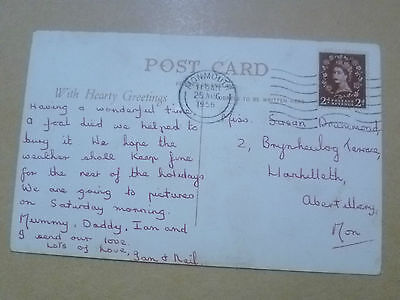 POST CARD
With Hearty Greetings
TO BE WRITTEN HERE
MONMOUTH
25 AUG
1956
2D 2D
Having a wonderful time
A goat died we helped to
bury it We hope the
weather shall keep fine
for the rest of the holidays
We are going to pictures
on Saturday morning.
Mummy, Daddy, Ian and
I send our love.
Lots of love, Ian & Neil
Miss. Susan Drummond,
2, Brynheulog Terrace,
Llanhilleth,
Abertillery,
Mon